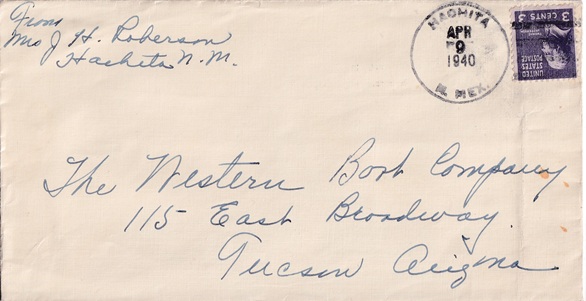 From
Mrs J. H. Roberson
Hachita N. M.
HACHITA
APR
9
1940
N. MEX.
3 CENTS 3
UNITED
STATES
POSTAGE
The Western Boot Company
115 East Broadway
Tucson Arizona